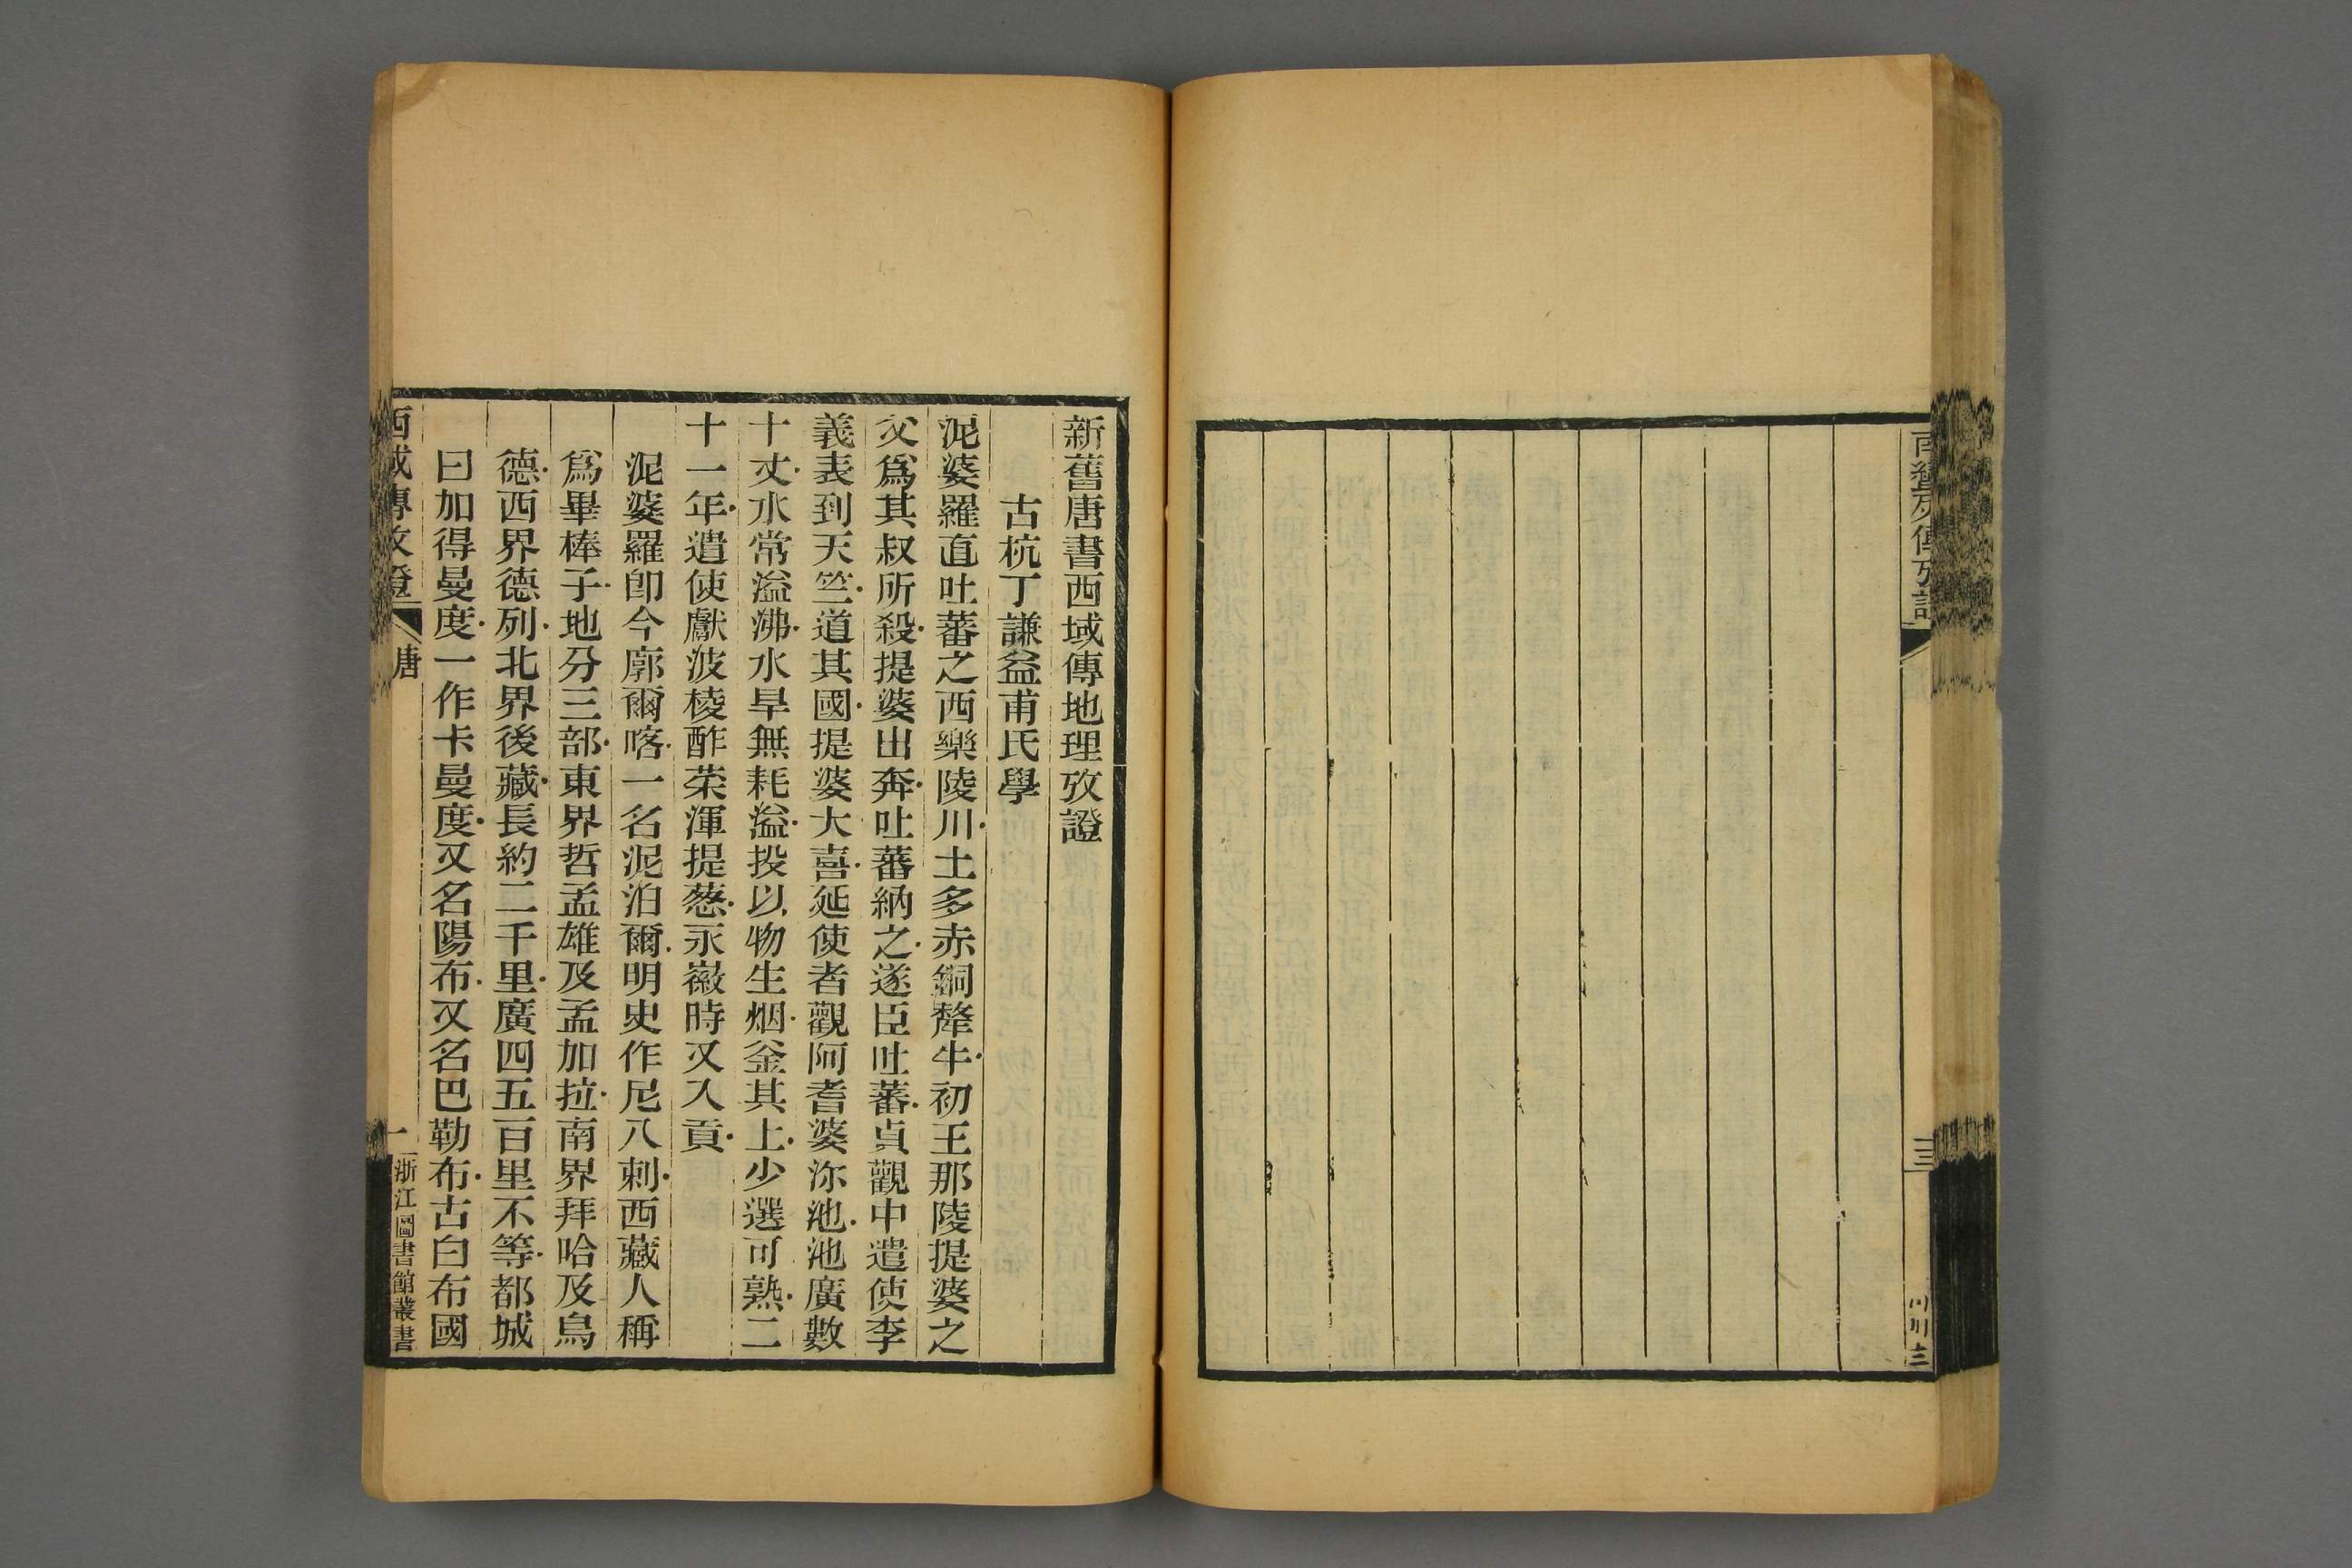 南蠻列傳攷證
三
新舊唐書西域傳地理攷證
古杭丁謙益甫氏學
泥婆羅直吐蕃之西樂陵川土多赤銅犛牛初王那陵提婆之
父爲其叔所殺提婆出奔吐蕃納之遂臣吐蕃貞觀中遣使李
義表到天竺道其國提婆大喜延使者觀阿耆婆沵池池廣數
十丈水常溢沸水旱無耗溢投以物生烟釜其上少選可熟二
十一年遣使獻波棱酢菜渾提葱永徽時又入貢
泥婆羅卽今廓爾喀一名泥泊爾明史作尼八剌西藏人稱
爲畢棒子地分三部東界哲孟雄及孟加拉南界拜哈及烏
德西界德列北界後藏長約二千里廣四五百里不等都城
曰加得曼度一作卡曼度又名陽布又名巴勒布古曰布國
西域傳攷證 唐
一 浙江圖書館叢書